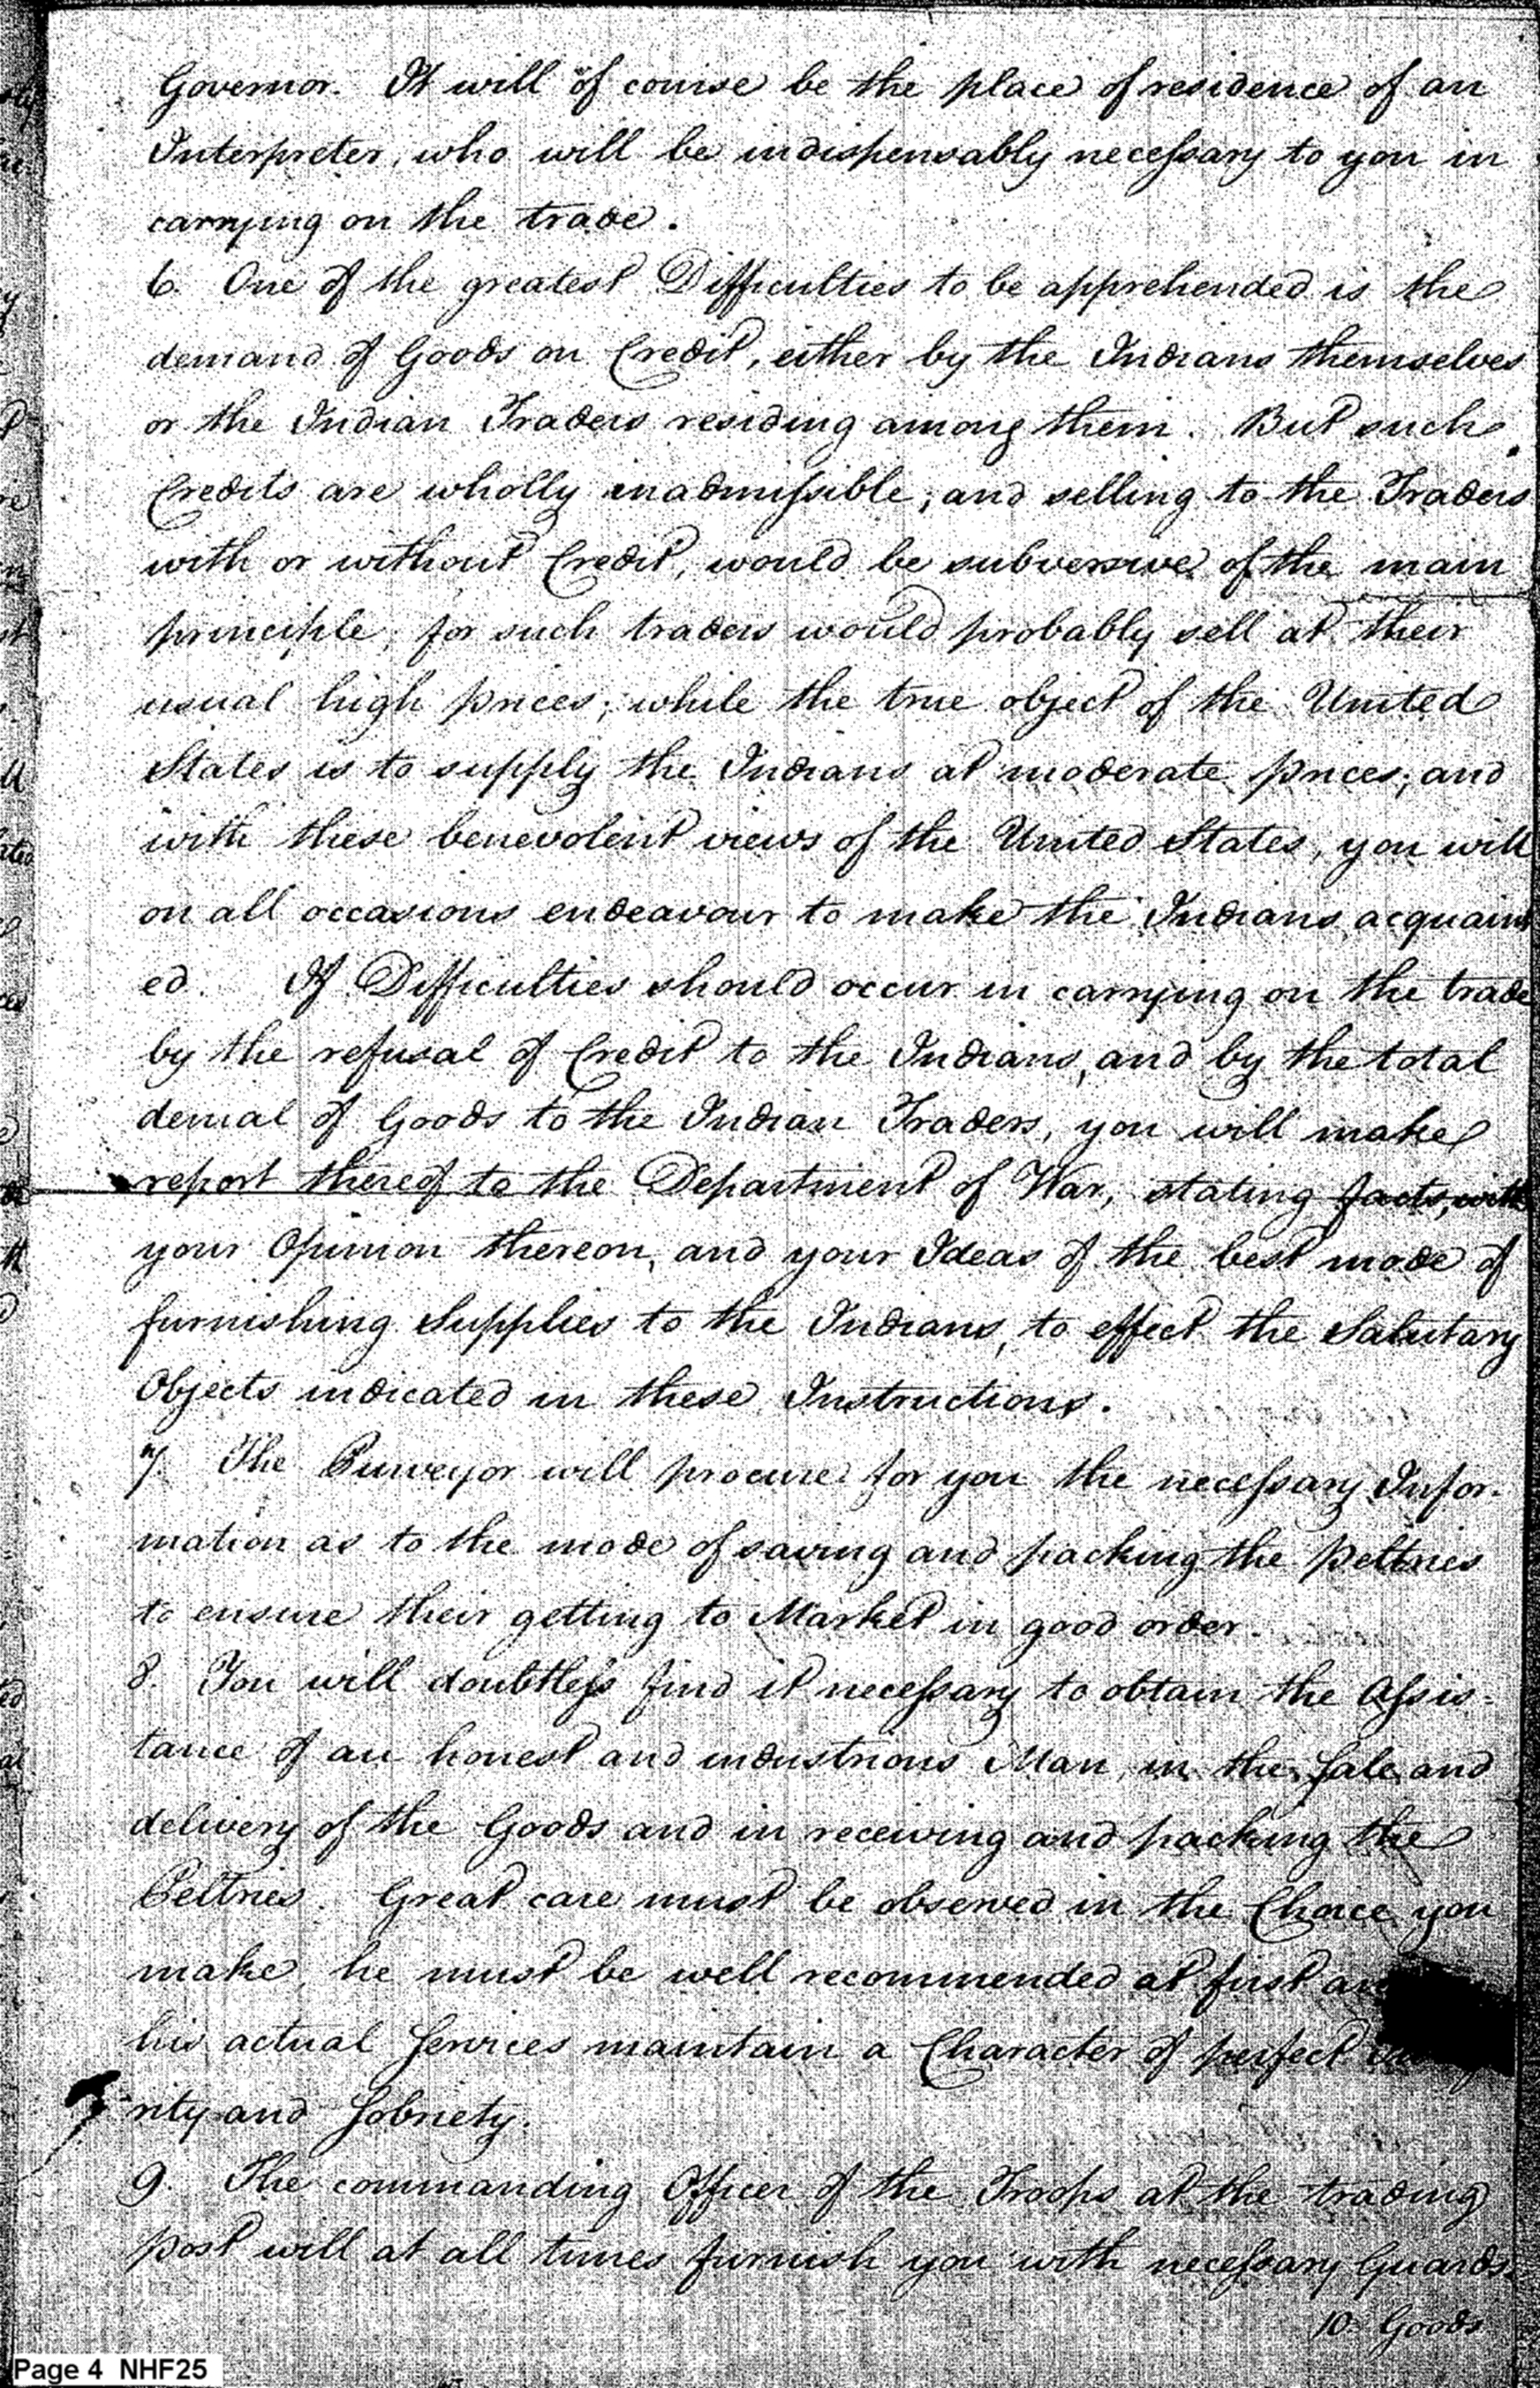 Governor. It will of course be the place of residence of an
Interpreter, who will be indispensably necessary to you in
carrying on the trade.
6. One of the greatest Difficulties to be apprehended is the
demand of Goods on Credit, either by the Indians themselves
or the Indian Traders residing among them. But such
Credits are wholly inadmissible; and selling to the Traders
with or without Credit, would be subversive of the main
principle; for such traders would probably sell at their
usual high prices; while the true object of the United
States is to supply the Indians at moderate prices; and
with these benevolent views of the United States, you will
on all occasions endeavour to make the Indians acquaint
ed. If Difficulties should occur in carrying on the trade
by the refusal of Credit to the Indians, and by the total
denial of Goods to the Indian Traders, you will make
report thereof to the Department of War, stating facts, with
your Opinion thereon, and your Ideas of the best mode of
furnishing Supplies to the Indians, to effect the Salutary
Objects indicated in these Instructions.
7. The Purveyor will procure for you the necessary Infor-
mation as to the mode of saving and packing the peltries
to ensure their getting to Market in good order.
8. You will doubtless find it necessary to obtain the Assis=
tance of an honest and industrious Man, in the Sale and
delivery of the Goods and in receiving and packing the
Peltries. Great care must be observed in the Choice you
make, he must be well recommended at first
his actual Services maintain a Character of perfect
rity and Sobriety.
9. The commanding Officer of the Troops at the trading
post will at all times furnish you with necessary Guards.
10. Goods
Page 4 NHF25